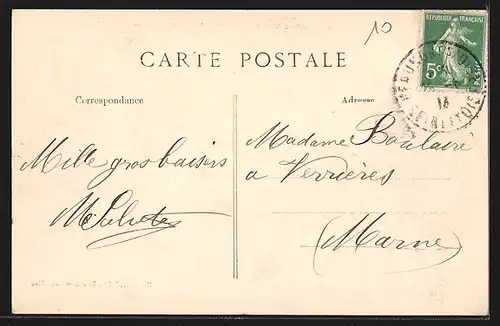 10
RÉPUBLIQUE FRANÇAISE
5c
POSTES
13
CARTE POSTALE
Correspondance
Mille gros baisers
Adresse
Madame Boulaire
a Verrières
(Marne)